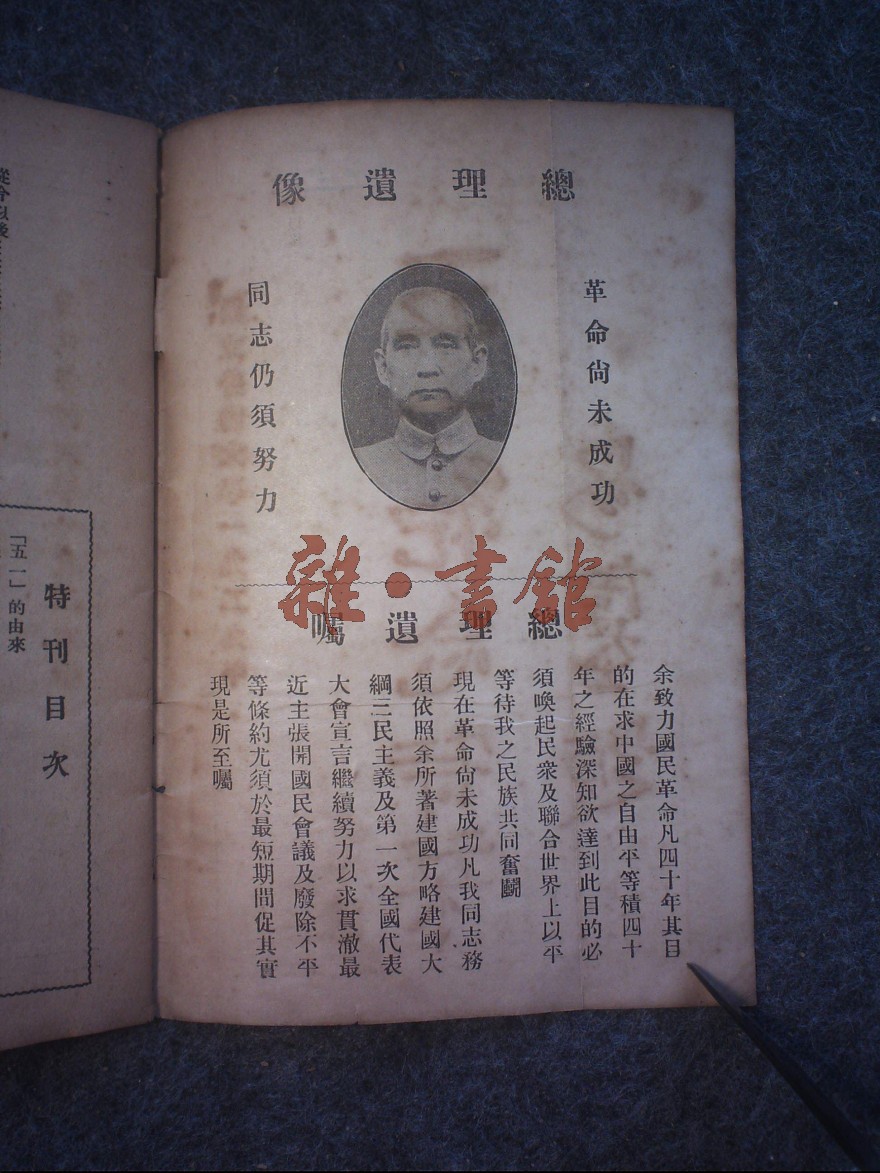 總理遺像
革命尙未成功
同志仍須努力
雜·書館
總理遺囑
余致力國民革命凡四十年其目
的在求中國之自由平等積四十
年之經驗深知欲達到此目的必
須喚起民衆及聯合世界上以平
等待我之民族共同奮鬭
現在革命尙未成功凡我同志務
須依照余所著建國方略建國大
綱三民主義及第一次全國代表
大會宣言繼續努力以求貫澈最
近主張開國民會議及廢除不平
等條約尤須於最短期間促其實
現是所至囑
特刊目次
「五一」的由來